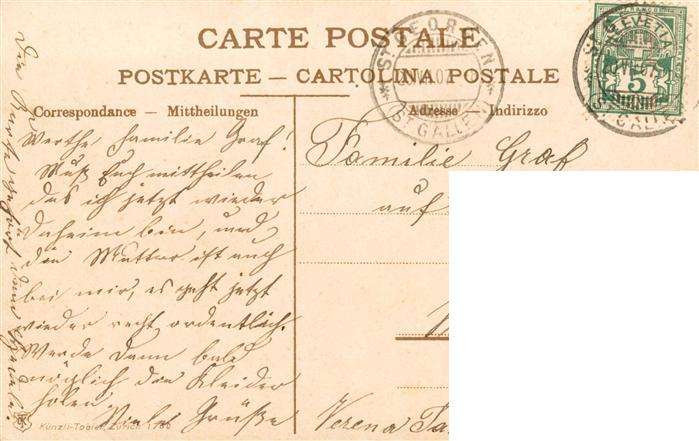 CARTE POSTALE
POSTKARTE – CARTOLINA POSTALE
Correspondance – Mittheilungen
Adresse – Indirizzo
ST. GEORGEN
ST GALLEN
HELVETIA
5
Werthe Familie Graf!
Muß Euch mittheilen
das ich jetzt wieder
daheim bin, und
die Mutter ist auch
bei mir, es geht jetzt
wieder recht ordentlich.
Werde dann bald
möglich die Kleider
holen.
Viele Grüße
Familie Graf
auf
Verena
Künzli-Tobler, Zürich